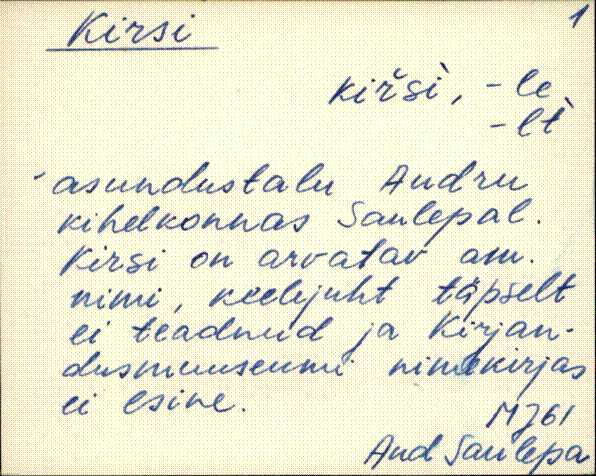 Kirsi
1
kiřsì, -le
-lt̀
asundustalu Audru
kihelkonnas Saulepal.
Kirsi on arvatav am.
nimi, keelejuht täpselt
ei teadnud ja Kirjan-
dusmuuseumi nimekirjas
ei esine.
MJ61
Aud Saulepa